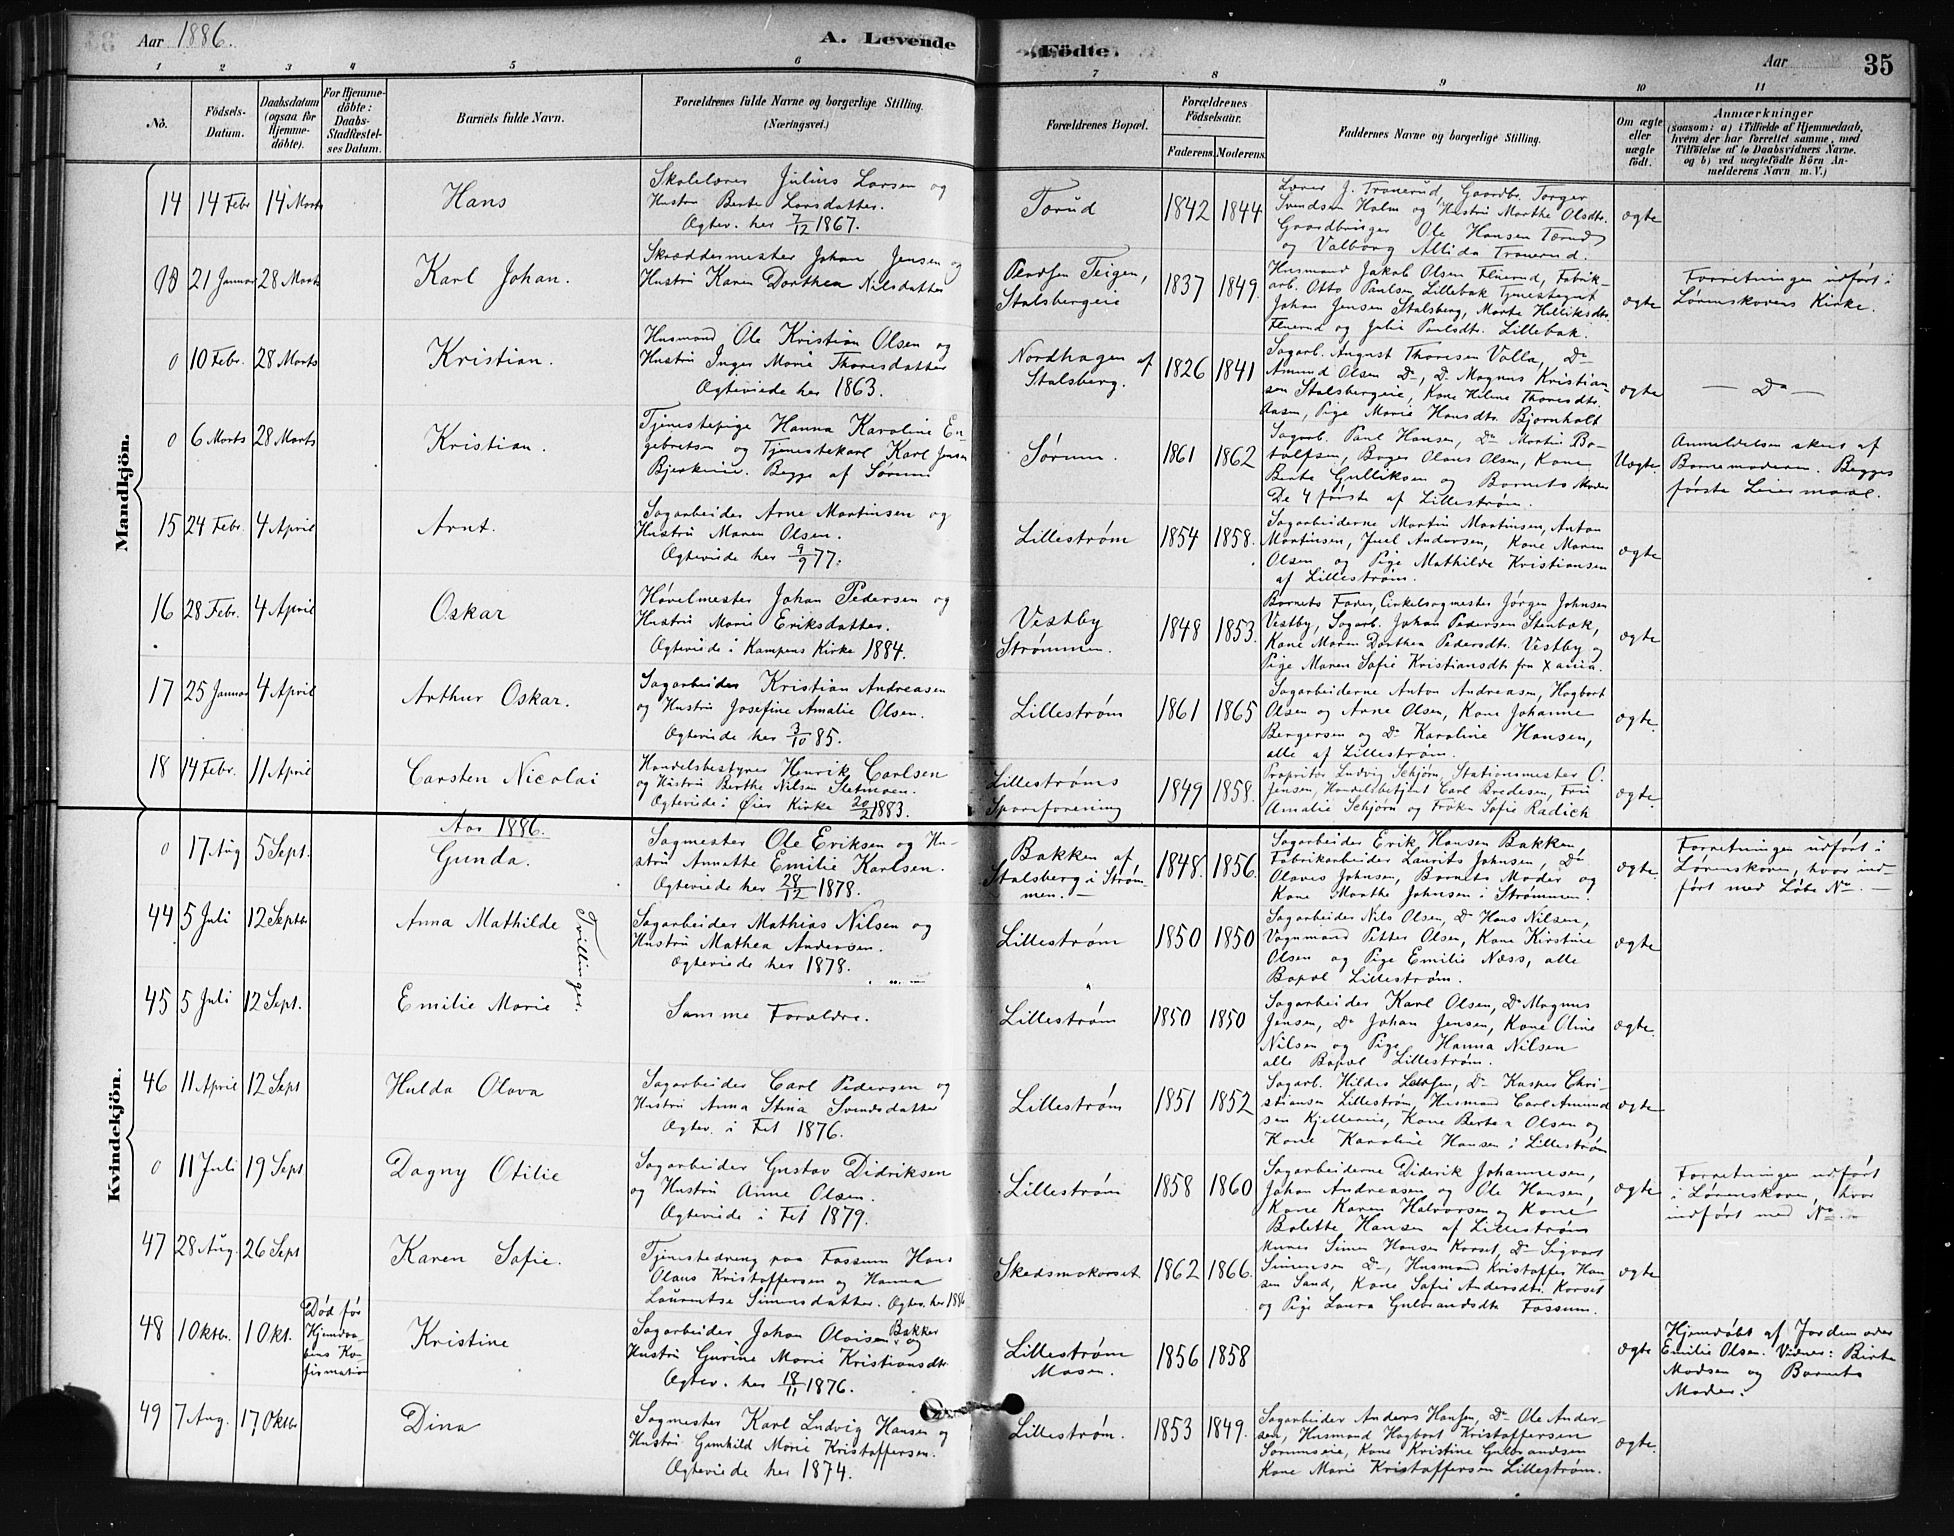 Aar 1886.
A. Levende Födte.
Aar
35
1 2 3 4 5 6 7 8 9 10 11
No.
Födsels-Datum.
Daabsdatum (ogsaa for Hjemme-döbte).
For Hjemme-döbte: Daabs-Stadfæstel-ses Datum.
Barnets fulde Navn.
Forældrenes fulde Navne og borgerlige Stilling.
(Næringsvei.)
Forældrenes Bopæl.
Forældrenes Födselsaar.
Faderens. Moderens.
Faddernes Navne og borgerlige Stilling.
Om ægte eller uægte født.
Anmærkninger
(saasom: a) i Tilfælde af Hjemmedaab,
hvem der har forrettet samme, med
Tilföielse af to Daabsvidners Navne,
og b) ved uægtefödte Börn An-
melderens Navn m. V.)
Mandkjön.
14 14 Febr 14 Marts
Hans
Skolelærer Julius Larsen og
Hustru Berte Larsdatter.
Ægtev. her 7/12 1867.
Torud
1842 1844
Lærer J. Tranerud, Gaardbr. Torger
Svendsen Holm og Hustru Marthe Olsdtr.
Gaardbruger Ole Hansen Torud
og Valborg Alfida Tranerud.
ægte
21 Januar 28 Marts
Karl Johan.
Skræddermester Johan Jensen og
Hustru Karen Dorthea Nilsdatter
Pladsen Teigen,
Stalsbergeie
1837 1849.
Husmand Jakob Olsen Fluerud, Fabrik-
arb. Otto Paulsen Lillebak Tjenestegut
Johan Jensen Stalsberg, Marte
Fluerud og Julie Paulsdtr. Lillebak.
ægte
Forretningen udført i
Lørenskovens Kirke.
0 10 Febr. 28 Marts
Kristian.
Husmand Ole Kristian Olsen og
Hustru Inger Marie Thoresdatter
Ægteviede her 1863.
Nordhagen af
Stalsberg.
1826 1841
Sagarb. August Thoresen Valla, Do
Amund Olsen Do, Do Magnus Kristian-
sen Stalsbergeie, Kone Helene Thoresdtr.
Aasen, Pige Marie Hansdtr. Bjørnholt
ægte
— Do —
0 6 Marts 28 Marts
Kristian.
Tjenestepige Hanna Karoline En-
gebretsen og Tjenestekarl Karl Jensen
Bjerkeeie. Begge af Sørum
Sørum.
1861 1862
Sagarb. Paul Hansen, Do Martin Bo-
tolfsen, Bager Olaus Olsen, Kone
Berte Gulliksen og Barnets Moder
De 4 første af Lillestrøm.
Uægte.
Anmeldelsen skeet af
Barnemoderen. Begges
første Leiermaal.
15 24 Febr. 4 April
Arnt.
Sagarbeider Arne Martinsen og
Hustru Maren Olsen.
Ægteviede her 9/9 77.
Lillestrøm
1854 1858.
Sagarbeiderne Martin Martinsen, Anton
Martinsen, Juel Andersen, Kone Maren
Olsen og Pige Mathilde Kristiansen
af Lillestrøm.
ægte
16 28 Febr. 4 April
Oskar
Høvelmester Johan Pedersen og
Hustru Marie Eriksdatter.
Ægteviede i Kampens Kirke 1884.
Vestby
Strømmen.
1848 1853.
Barnets Fader, Cirkelsagmester Jørgen Johnsen
Vestby, Sagarb. Johan Pedersen Stenbak,
Kone Maren Dorthea Pedersdtr. Vestby og
Pige Maren Sofie Kristiansdtr fra Xania.
ægte
17 25 Januar 4 April
Arthur Oskar.
Sagarbeider Kristian Andreasen
og Hustru Josefine Amalie Olsen.
Ægteviede her 3/10 85.
Lillestrøm
1861 1865
Sagarbeiderne Anton Andreasen, Hagbart
Olsen og Arne Olsen, Kone Johanne
Bergersen og Do Karoline Hansen,
alle af Lillestrøm.
ægte.
18 14 Febr. 11 April
Carsten Nicolai
Handelsbestyrer Henrik Carlsen
og Hustru Berthe Nilsen Sletmoen.
Ægteviede i Øier Kirke 20/2 1883.
Lillestrøms
Sporeforening
1849 1858.
Propritær Ludvig Schjørn, Stationsmester O.
Jensen, Handelsbetjent Carl Bredesen, Fru
Amalie Schjørn og Frøken Sofie Radich
ægte.
Kvindekjön.
Aar 1886.
0 17 Aug 5 Sept.
Gunda.
Sagmester Ole Eriksen og Hu-
stru Annette Emilie Karlsen.
Ægteviede her 28/12 1878.
Bakken af
Stalsberg i Strøm-
men.
1848. 1856.
Sagarbeider Erik Hansen Bakken,
Fabrikarbeider Laurits Johnsen, Do
Olaves Johnsen, Barnets Moder og
Kone Marthe Johnsen i Strømmen.
ægte.
Forretningen udført i
Lørenskoven, hvor ind-
ført med Løbe No —
44 5 Juli 12 Septbr
Anna Mathilde
Tvillinger.
Sagarbeider Mathias Nilsen og
Hustru Mathea Andersen.
Ægteviede her 1878.
Lillestrøm
1850 1850
Sagarbeider Nils Olsen, Do Hans Nilsen,
Vognmand Petter Olsen, Kone Kirstine
Olsen og Pige Emilie Næss, alle
Bopæl Lillestrøm.
ægte
45 5 Juli 12 Sept.
Emilie Marie
Samme Forældre.
Lillestrøm
1850 1850
Sagarbeider Karl Olsen, Do Magnus
Jensen, Do Johan Jensen, Kone Oline
Nilsen og Pige Hanna Nilsen
alle Bopæl Lillestrøm.
ægte.
46 11 April 12 Sept
Hulda Olava
Sagarbeider Carl Pedersen og
Hustru Anna Stina Svendsdatter
Ægtev. i Fet 1876.
Lillestrøm
1851 1852
Sagarb. Hildes Larsen, Do Kasper Chri-
stiansen Lillestrøm, Husmand Carl Amund
sen Kjellereie, Kone Berte Olsen og
Kone Karoline Hansen i Lillestrøm
ægte
0 11 Juli 19 Sept
Dagny Otilie
Sagarbeider Gustav Didriksen
og Hustru Anne Olsen.
Ægteviede i Fet 1879.
Lillestrøm
1858 1860
Sagarbeiderne Diderik Johannesen,
Johan Andreasen og Ole Hansen,
Kone Karen Halvorsen og Kone
Bolette Hansen af Lillestrøm
ægte
Forretningen udført
i Lørenskoven, hvor
indført med No —
47 28 Aug. 26 Sept
Karen Sofie.
Tjenestedreng paa Fossum Hans
Olaus Kristoffersen og Hanna
Laurentse Simensdatter. Ægtev. her 1886
Skedsmokorset
1862 1866.
Murer Simen Hansen Korset, Do Sigvart
Simensen Do, Husmand Kristoffer Han-
sen Sand, Kone Sofie Andersdtr. Korset
og Pige Laura Gulbrandsdtr Fossum.
ægte
48 1 Oktbr. 1 Okt.
Død før
Hjemdaa-
bens Kon-
firmation
Kristine
Sagarbeider Johan Olaisen Bakker og
Hustru Gurine Marie Kristiansdtr.
Ægtev. her 18/11 1876.
Lillestrøm
Mosen.
1856 1858
ægte
Hjemdøbt af Jordemoder
Emilie Olsen. Vidner: Birte
Madsen og Barnets
Moder.
49 7 Aug. 17 Oktbr
Dina
Sagmester Karl Ludvig Hansen og
Hustru Gunhild Marie Kristoffersen.
Ægteviede her 1874.
Lillestrøm.
1853 1849.
Sagarbeider Anders Hansen, Do Ole Ander-
sen, Husmand Hagbart Kristoffersen
Sørumseie, Kone Kristine Gulbrandsen
Kone Marie Kristoffersen Lillestrøm.
ægte.